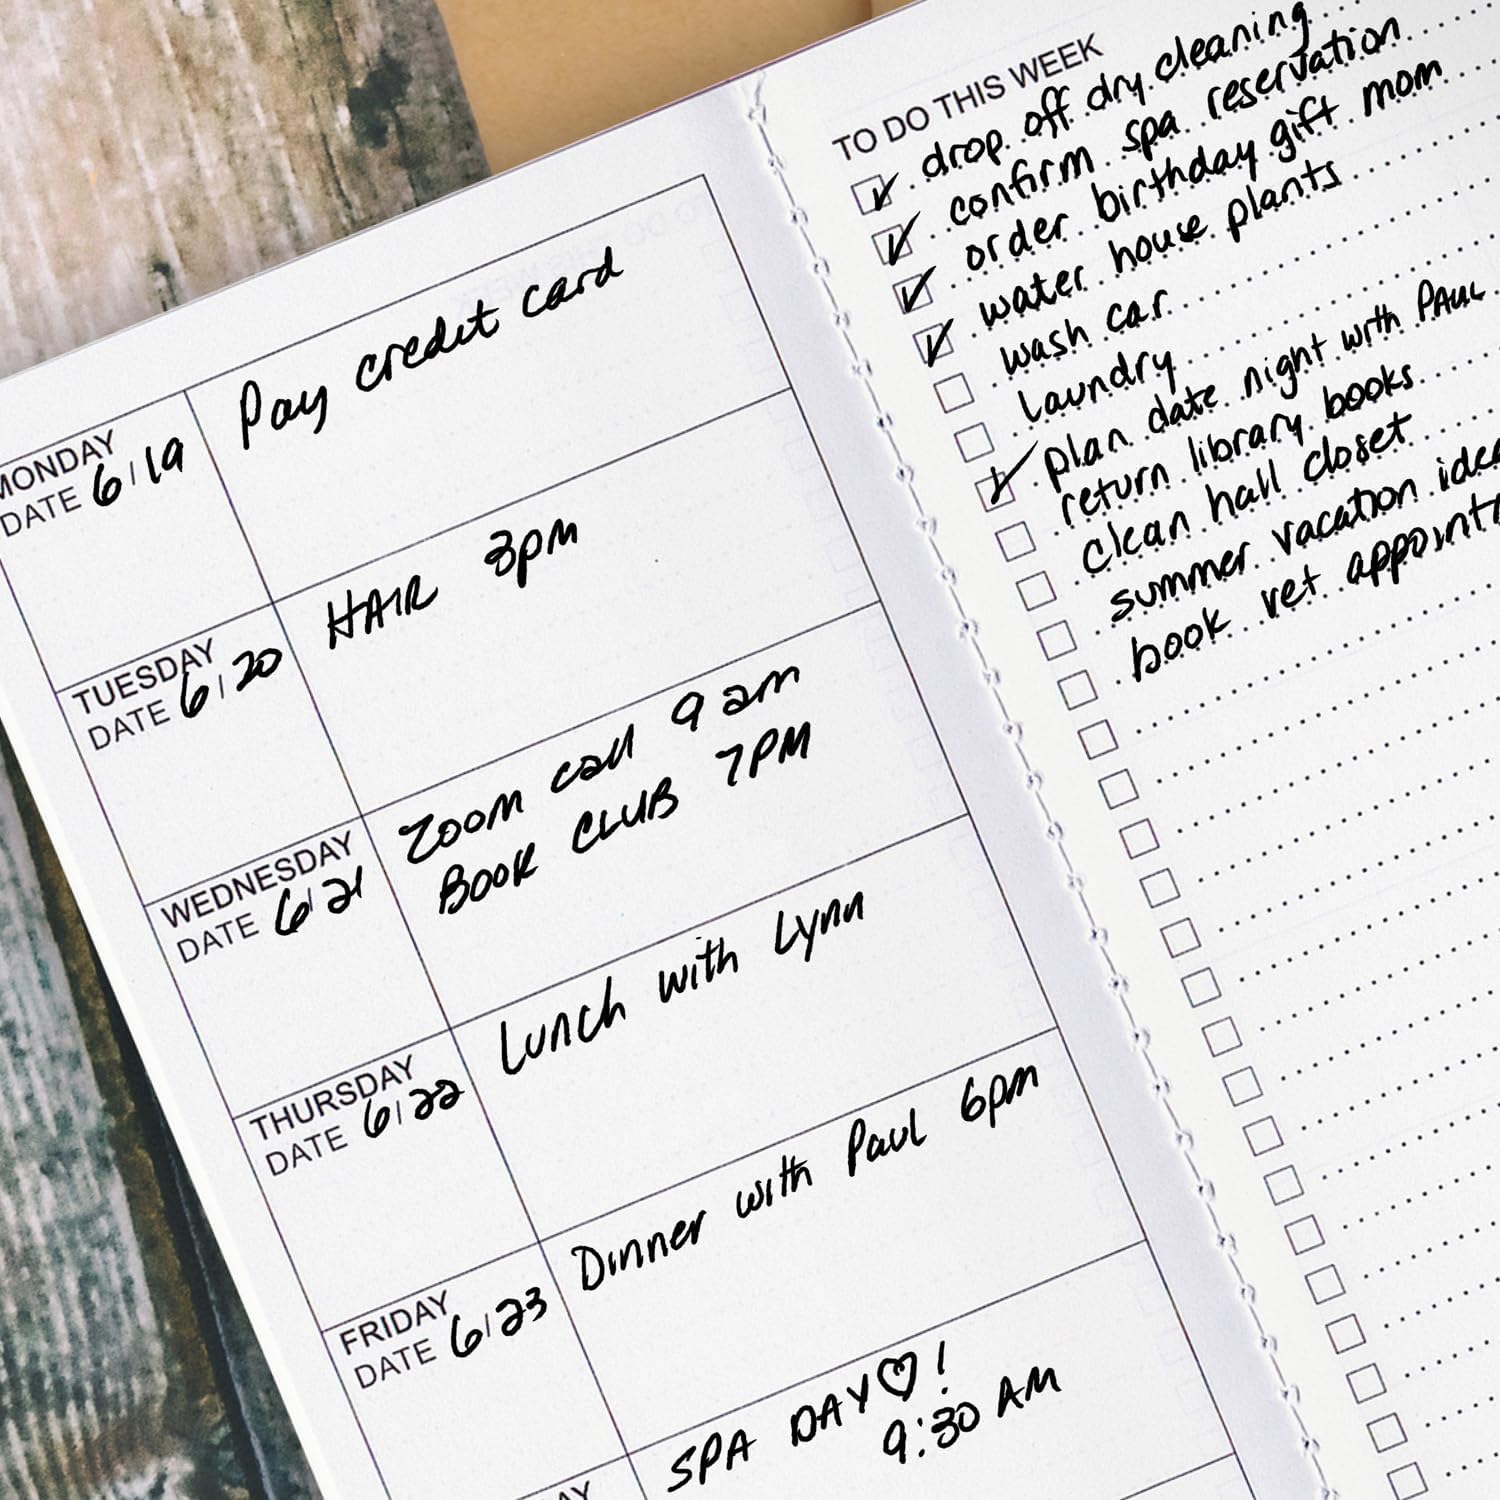 Pay credit card
MONDAY
DATE 6/19
HAIR 3pm
TUESDAY
DATE 6/20
Zoom call 9 am
BOOK CLUB 7PM
WEDNESDAY
DATE 6/21
Lunch with Lynn
THURSDAY
DATE 6/22
Dinner with Paul 6pm
FRIDAY
DATE 6/23
SPA DAY♡!
9:30 AM
TO DO THIS WEEK
drop off dry cleaning
confirm spa reservation
order birthday gift mom
water house plants
wash car
laundry
plan date night with PAUL
return library books
clean hall closet
summer vacation
book vet